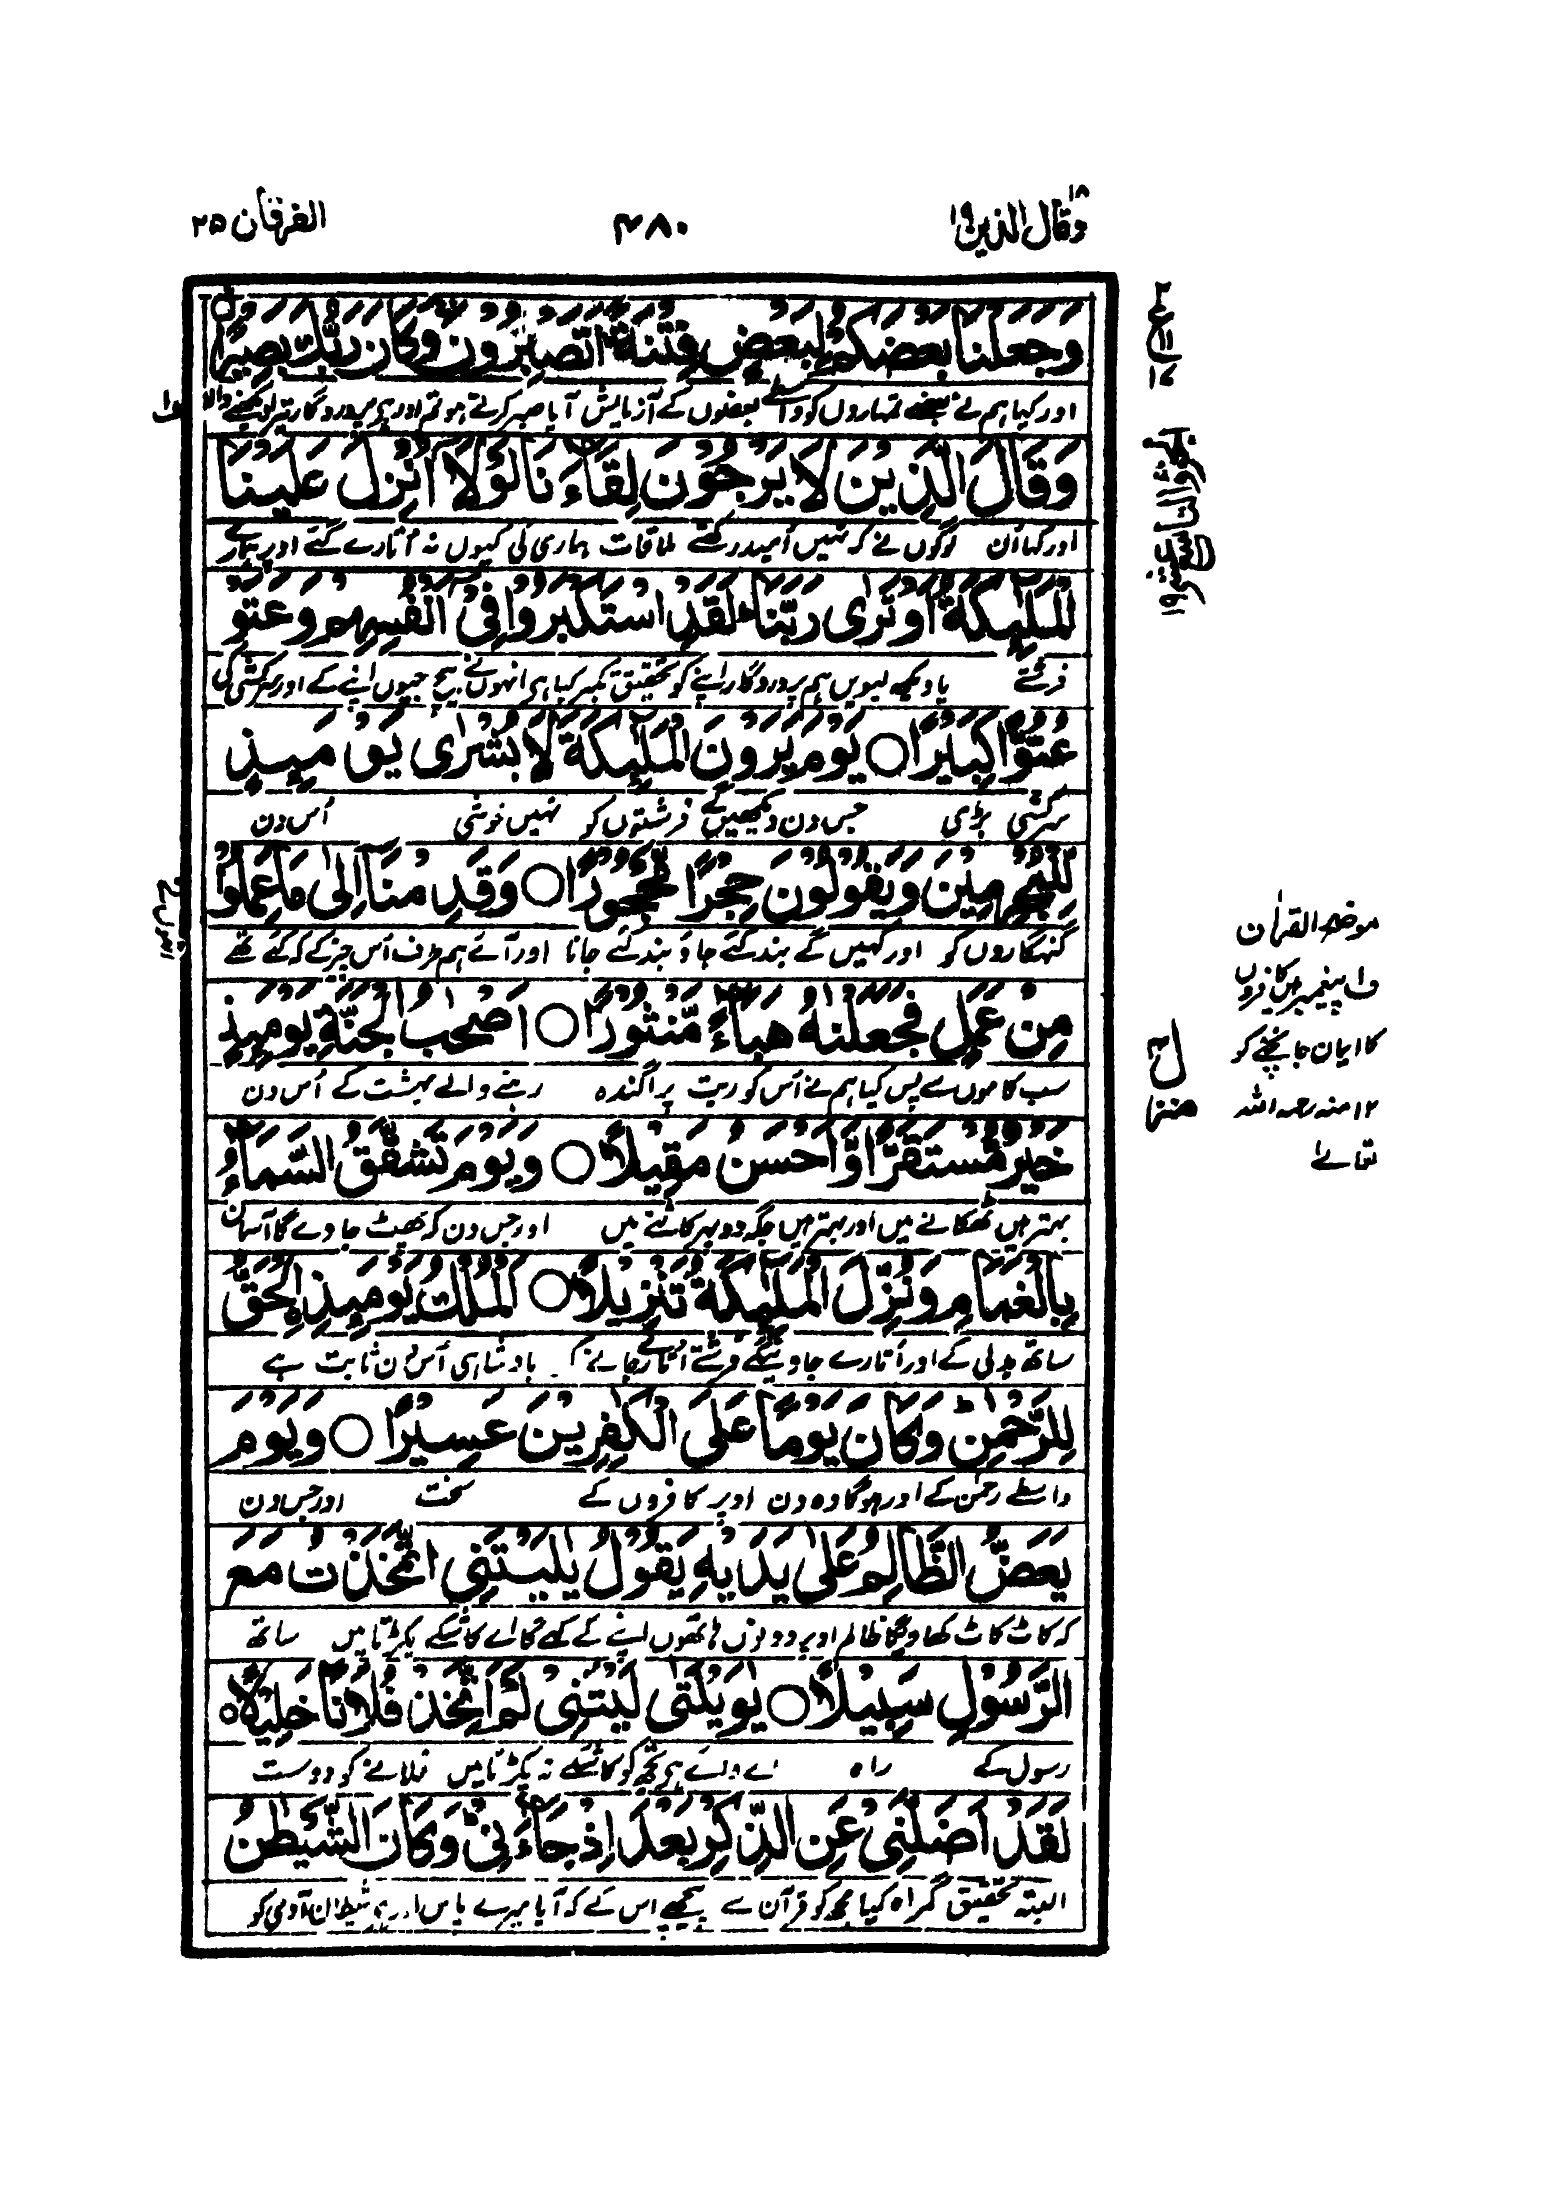 وقال الذین ۱۹
۱۸
۴۸۰
الفرقان ۲۵
وَجَعَلْنَا بَعْضَكُمْ لِبَعْضٍ فِتْنَةً ۚ اَتَصْبِرُوْنَ ۚ وَكَانَ رَبُّكَ بَصِيْرًا
اور کیا ہم نے بعضے تمہاروں کو واسطے بعضوں کے آزمایش آیا صبر کرتے ہو تم اور ہی پروردگار تیرا دیکھنے والا ف۱
وَقَالَ الَّذِيْنَ لَا يَرْجُوْنَ لِقَآءَ نَا لَوْ لَآ اُنْزِلَ عَلَيْنَا
اور کہا اُن لوگوں نے کہ نہیں اُمید رکھتے ملاقات ہماری کی کیوں نہ اُتارے گئے اوپر ہمارے
الْمَلٰٓئِكَةُ اَوْ نَرٰى رَبَّنَا ؕ لَقَدِ اسْتَكْبَرُوْا فِيْٓ اَنْفُسِهِمْ وَعَتَوْ
فرشتے یا دیکھ لیویں ہم پروردگار اپنے کو تحقیق تکبر کیا ہی انہوں نے بیچ جیوں اپنے کے اور سرکشی کی
عُتُوًّا كَبِيْرًا ○ يَوْمَ يَرَوْنَ الْمَلٰٓئِكَةَ لَا بُشْرٰى يَوْ مَئِذٍ
سرکشی بڑی جس دن دیکھیں گے فرشتوں کو نہیں خوشی اُس دن
لِّلْمُجْرِمِيْنَ وَيَقُوْلُوْنَ حِجْرًا مَّحْجُوْرًا ○ وَقَدِ مْنَآ اِلٰى مَا عَمِلُوْا
گنہگاروں کو اور کہیں گے بند کئے جاؤ بند کئے جانا اور آئے ہم طرف اُس چیز کے کہ کئے تھے
مِنْ عَمَلٍ فَجَعَلْنٰهُ هَبَآءً مَّنْثُوْرًا ○ اَصْحٰبُ الْجَنَّةِ يَوْمَئِذٍ
سب کاموں سے پس کیا ہم نے اُس کو ریت پراگندہ رہنے والے بہشت کے اُس دن
خَيْرٌ مُّسْتَقَرًّا وَّ اَحْسَنُ مَقِيْلًا ○ وَيَوْمَ تَشَقَّقُ السَّمَآءُ
بہتر ہیں ٹھکانے میں اور بہتر ہیں جگہ دوپہر کاٹنے میں اور جس دن کہ پھٹ جاوے گا آسمان
بِالْغَمَامِ وَنُزِّلَ الْمَلٰٓئِكَةُ تَنْزِيْلًا ○ اَلْمُلْكُ يَوْمَئِذِ ِۨالْحَقُّ
ساتھ بدلی کے اور اُتارے جاوینگے فرشتے اُتارے جانے کر بادشاہی اُس دن ثابت ہے
لِلرَّحْمٰنِ ؕ وَكَانَ يَوْمًا عَلَى الْكٰفِرِيْنَ عَسِيْرًا ○ وَيَوْمَ
واسطے رحمٰن کے اور ہوگا وہ دن اوپر کافروں کے سخت اور جس دن
يَعَضُّ الظَّالِمُ عَلٰى يَدَيْهِ يَقُوْلُ يٰلَيْتَنِى اتَّخَذْتُ مَعَ
کہ کاٹ کاٹ کھاویگا ظالم اوپر دونوں ہاتھوں اپنے کے کہے گا اے کاشکے پکڑتا میں ساتھ
الرَّسُوْلِ سَبِيْلًا ○ يٰوَيْلَتٰى لَيْتَنِيْ لَمْ اَتَّخِذْ فُلَانًا خَلِيْلًا ○
رسول کے راہ اے وائے ہی مجھ کو کاشکے نہ پکڑتا میں فلانے کو دوست
لَقَدْ اَضَلَّنِيْ عَنِ الذِّكْرِ بَعْدَ اِذْ جَآءَ نِيْ ؕ وَكَانَ الشَّيْطٰنُ
البتہ تحقیق گمراہ کیا مجھ کو قرآن سے پیچھے اس کے کہ آیا میرے پاس اور ہی شیطان آدمی کو
الجزو التاسع عشر ۱۹
موضح القرآن
ف۱ پیغمبر ہیں کافروں
کا ایمان جانچنے کو
۱۲ منہ رحمہ اللہ
تعالے
منزل